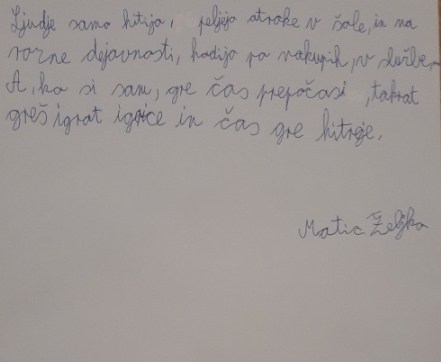 Ljudje samo hitijo, peljejo otroke v šole, in na
razne dejavnosti, hodijo po nakupih, v službe.
A, ko si sam, gre čas prepočasi, takrat
greš igrat igrice in čas gre hitreje.
Matic Željko